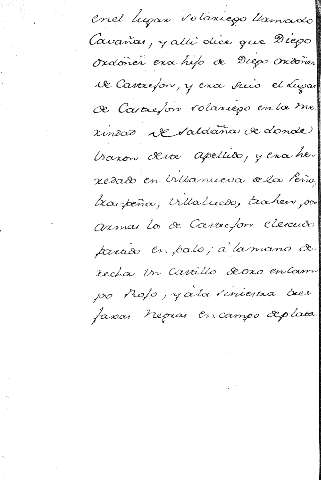 en el lugar solariego llamado
Cavañas, y alli dice que Diego
ordoñez era hijo de Diego ordoñez
de Castrejon, y era suio el Lugar
de Castrejon solariego en la me
rindad de Saldaña de donde
traxon de su Apellido, y era he
redado en Villanueva de la Peña
Traspeña, Villalueto, trahen, por
armas los de Castrejon el escudo
partido en palo; á la mano de
recha Un Castillo de oro en cam
po Rojo, y á la siniestra tres
faxas negras en campo de plata